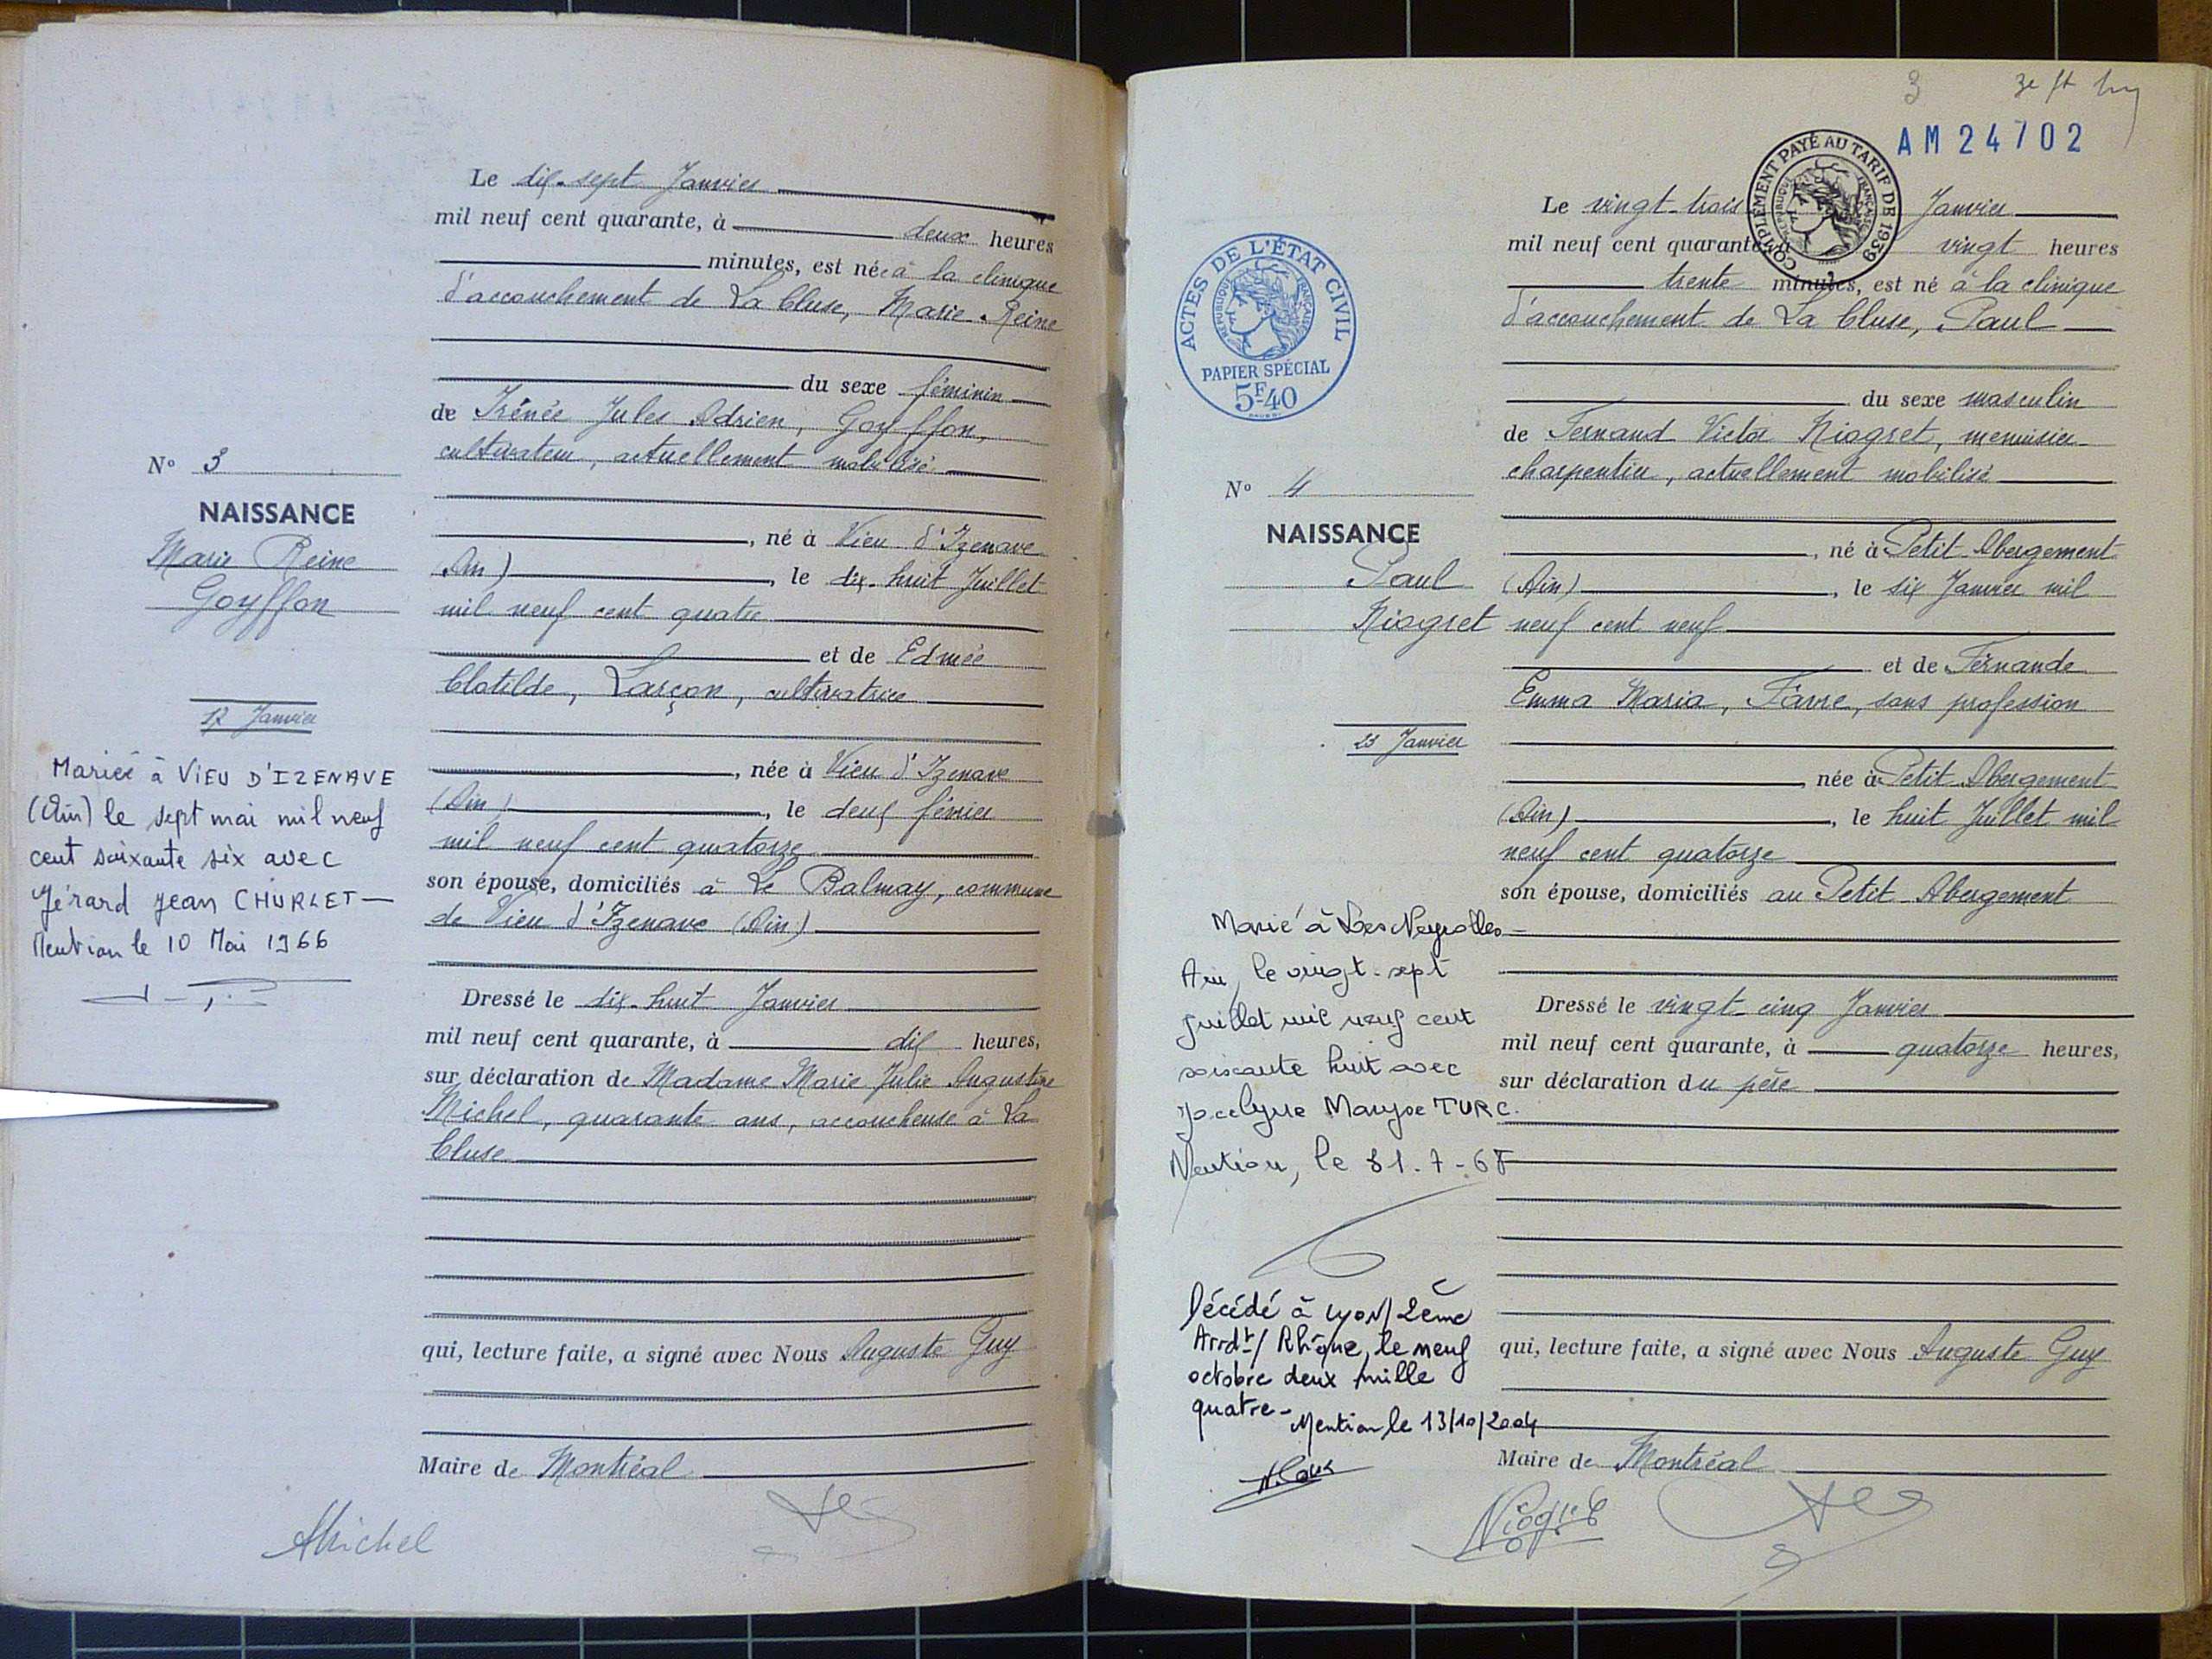 Le dix-sept Janvier
mil neuf cent quarante, à deux heures
minutes, est née à la clinique
d'accouchement de La Cluse, Marie-Reine
du sexe féminin
de Irénée Jules Adrien, Goyffon,
cultivateur, actuellement mobilisé
, né à Vieu d'Izenave
(Ain) , le dix-huit Juillet
mil neuf cent quatre
et de Edmée
Clotilde, Larçon, cultivatrice
, née à Vieu d'Izenave
(Ain) , le deux février
mil neuf cent quatorze
son épouse, domiciliés à Le Balmay, commune
de Vieu d'Izenave (Ain)
Dressé le dix-huit Janvier
mil neuf cent quarante, à dix heures,
sur déclaration de Madame Marie Julie Augustine
Michel, quarante ans, accoucheuse à La
Cluse
qui, lecture faite, a signé avec Nous Auguste Guy
Maire de Montréal
Michel
N° 3
NAISSANCE
Marie Reine
Goyffon
17 Janvier
Mariée à VIEU D'IZENAVE
(Ain) le sept mai mil neuf
cent soixante six avec
Gérard Jean CHURLET—
Mention le 10 Mai 1966
3
AM24702
COMPLÉMENT PAYÉ AU TARIF DE 1939
RÉPUBLIQUE FRANÇAISE
Le vingt-trois Janvier
mil neuf cent quarante, à vingt heures
trente minutes, est né à la clinique
d'accouchement de La Cluse, Paul
du sexe masculin
de Fernand Victor Niogret, menuisier
charpentier, actuellement mobilisé
, né à Petit-Abergement
(Ain) , le six Janvier mil
neuf cent neuf
et de Fernande
Emma Maria, Favre, sans profession
née à Petit-Abergement
(Ain) , le huit Juillet mil
neuf cent quatorze
son épouse, domiciliés au Petit-Abergement
Dressé le vingt-cinq Janvier
mil neuf cent quarante, à quatorze heures,
sur déclaration du père
qui, lecture faite, a signé avec Nous Auguste Guy
Maire de Montréal
Niogret
ACTES DE L'ÉTAT CIVIL
RÉPUBLIQUE FRANÇAISE
PAPIER SPÉCIAL
5F40
N° 4
NAISSANCE
Paul
Niogret
23 Janvier
Marié à Les Neyrolles
Ain, le vingt-sept
juillet mil neuf cent
soixante huit avec
Jocelyne Maryse TURC.
Mention, le 31-7-68
Décédé à LYON/2ème
Arrdt/Rhône, le neuf
octobre deux mille
quatre-
Mention le 13/10/2004